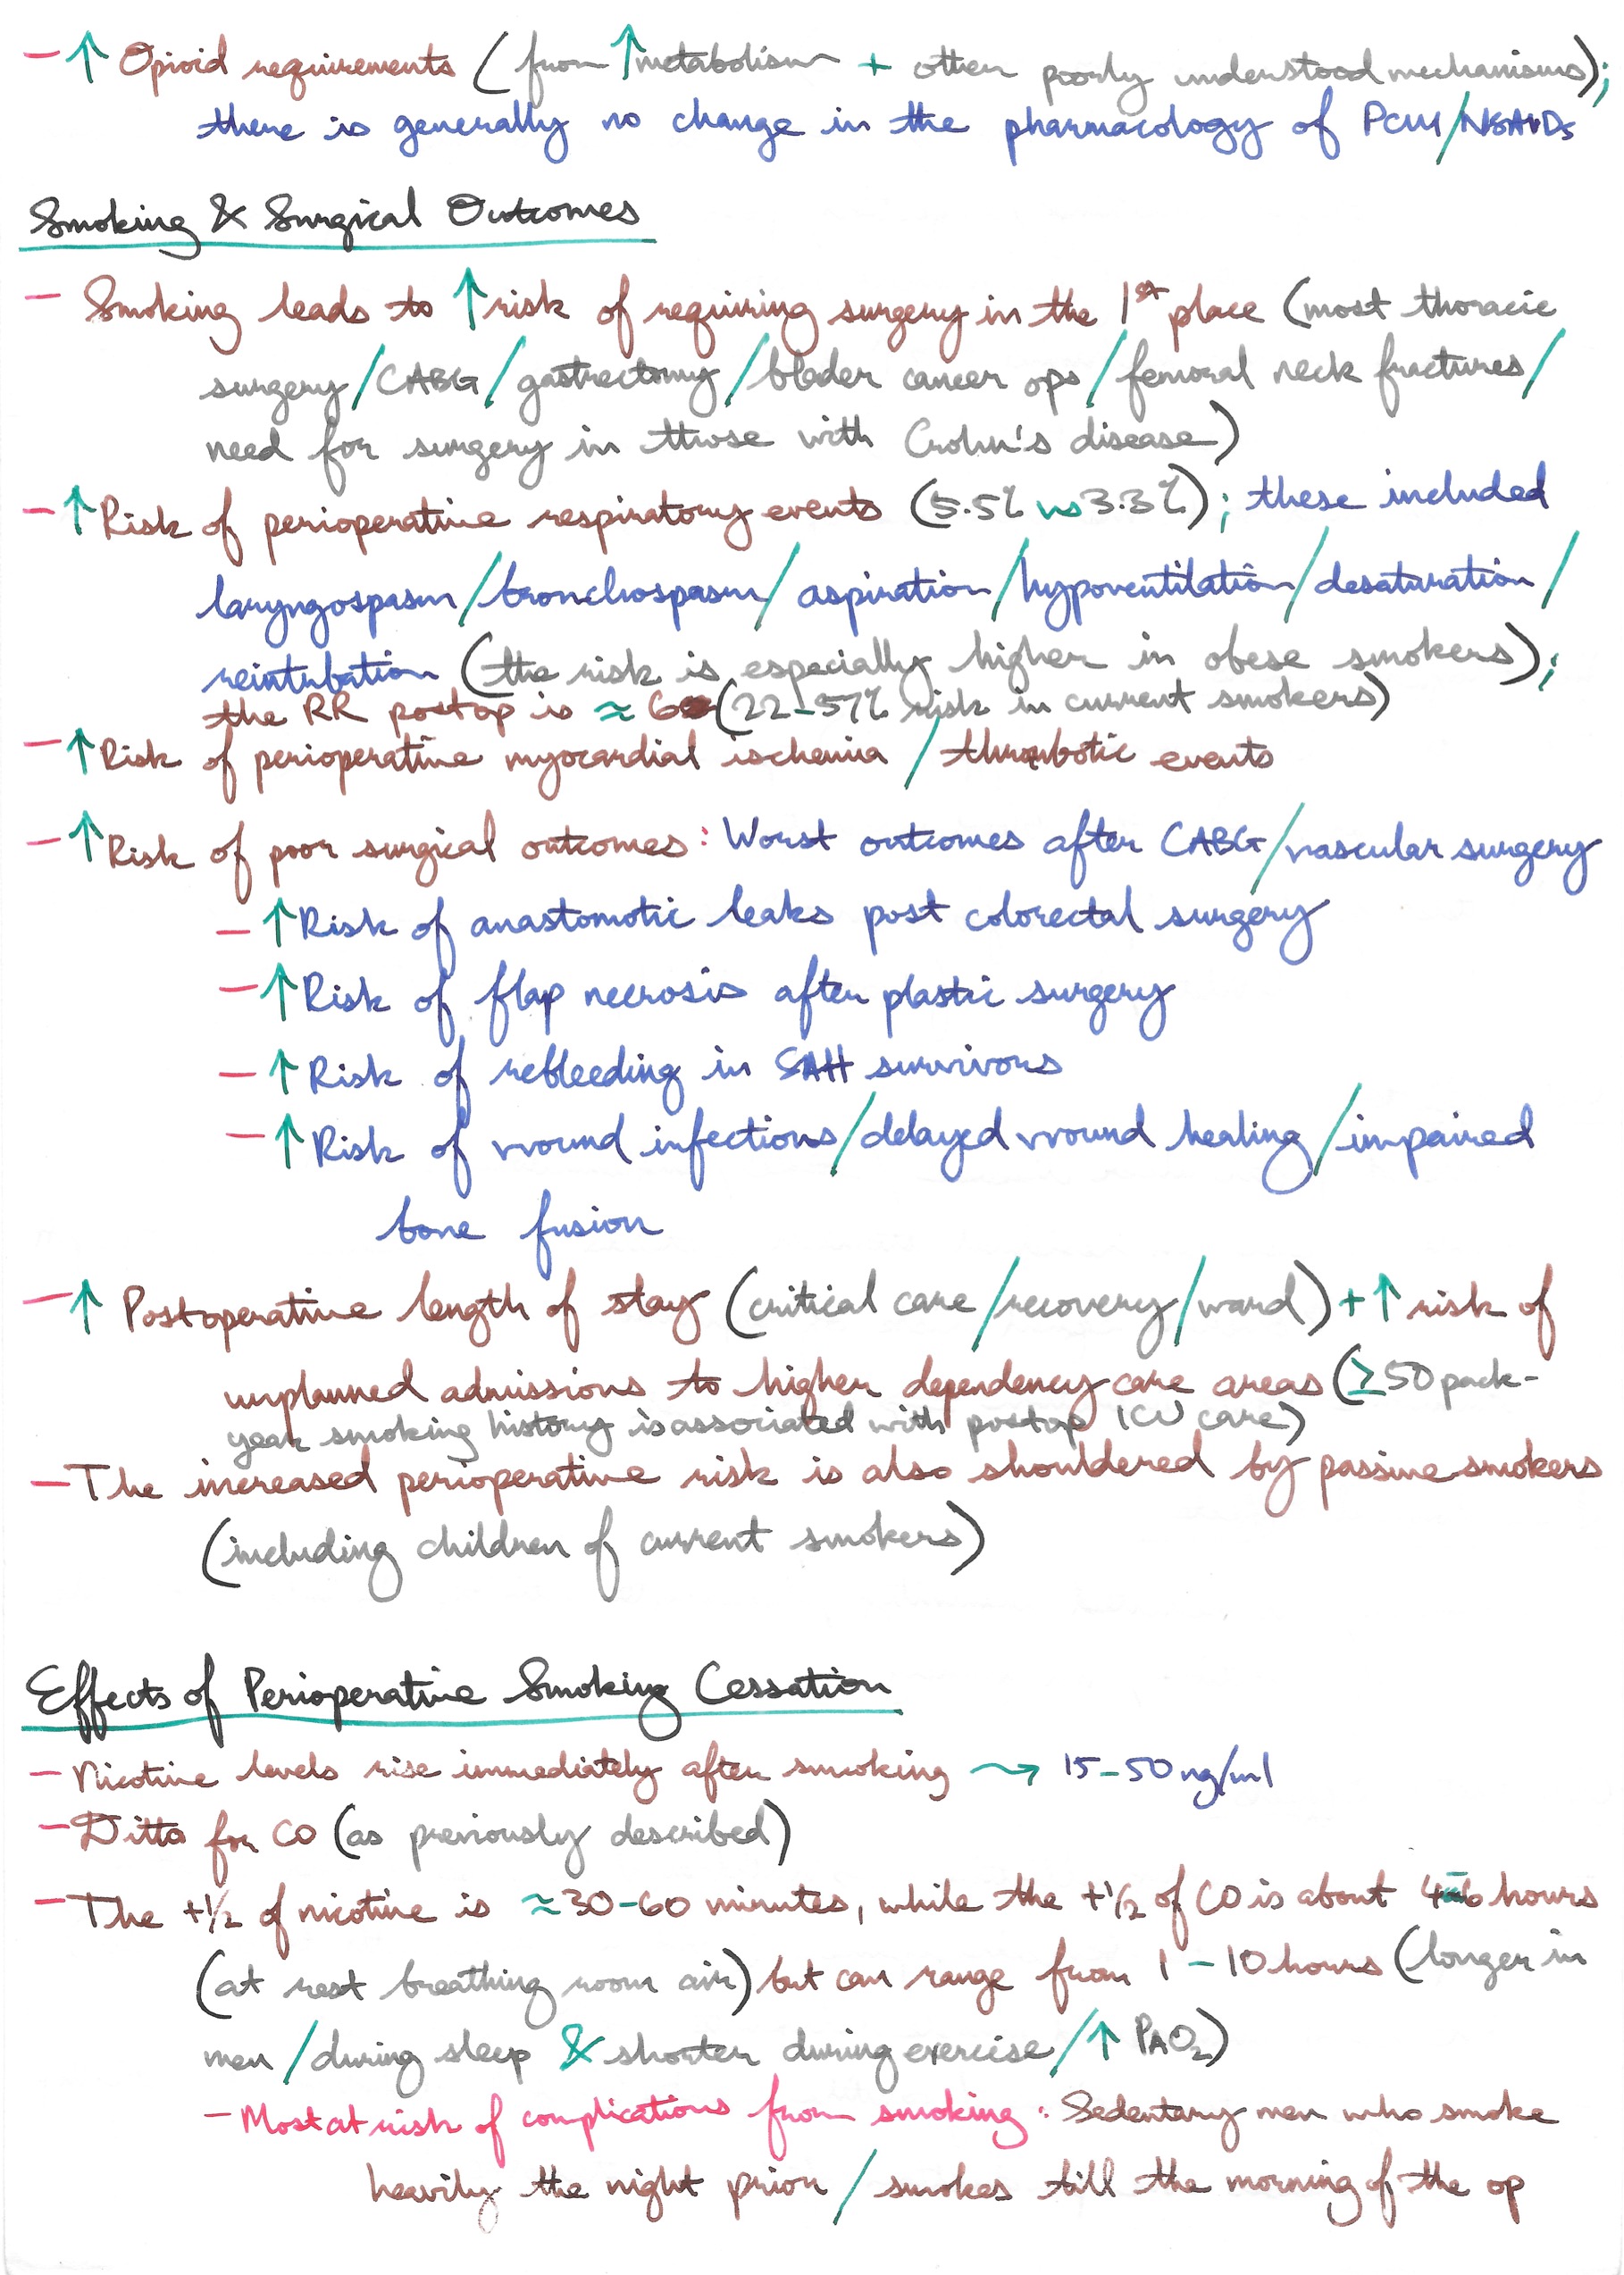 - ↑ Opioid requirements (from ↑ metabolism + other poorly understood mechanisms);
there is generally no change in the pharmacology of PCM/NSAIDs
Smoking & Surgical Outcomes
- Smoking leads to ↑ risk of requiring surgery in the 1st place (most thoracic
surgery/CABG/gastrectomy/blader cancer ops/femoral neck fractures/
need for surgery in those with Crohn's disease)
- ↑ Risk of perioperative respiratory events (5.5% vs 3.3%); these included
laryngospasm/bronchospasm/aspiration/hypoventilation/desaturation/
reintubation (the risk is especially higher in obese smokers);
the RR postop is ≈ 6 (22-57% risk in current smokers)
- ↑ Risk of perioperative myocardial ischemia / thrombotic events
- ↑ Risk of poor surgical outcomes: Worst outcomes after CABG/vascular surgery
- ↑ Risk of anastomotic leaks post colorectal surgery
- ↑ Risk of flap necrosis after plastic surgery
- ↑ Risk of rebleeding in SAH survivors
- ↑ Risk of wound infections/delayed wound healing/impaired
bone fusion
- ↑ Postoperative length of stay (critical care/recovery/ward) + ↑ risk of
unplanned admissions to higher dependency care areas (≥50 pack-
year smoking history is associated with postop ICU care)
- The increased perioperative risk is also shouldered by passive smokers
(including children of current smokers)
Effects of Perioperative Smoking Cessation
- Nicotine levels rise immediately after smoking → 15-50 ng/ml
- Ditto for CO (as previously described)
- The t1/2 of nicotine is ≈30-60 minutes, while the t1/2 of CO is about 4-6 hours
(at rest breathing room air) but can range from 1-10 hours (longer in
men/during sleep & shorter during exercise/↑ PAO2)
- Most at risk of complications from smoking: Sedentary men who smoke
heavily the night prior / smokes till the morning of the op